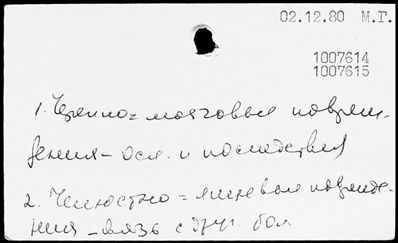 02.12.80 М.Г.
1007614
1007615
1. Черепно=мозговые повреж-
дения – осл. и последствия
2. Челюстно=лицевые поврежде-
ния – связь с друг. бол.